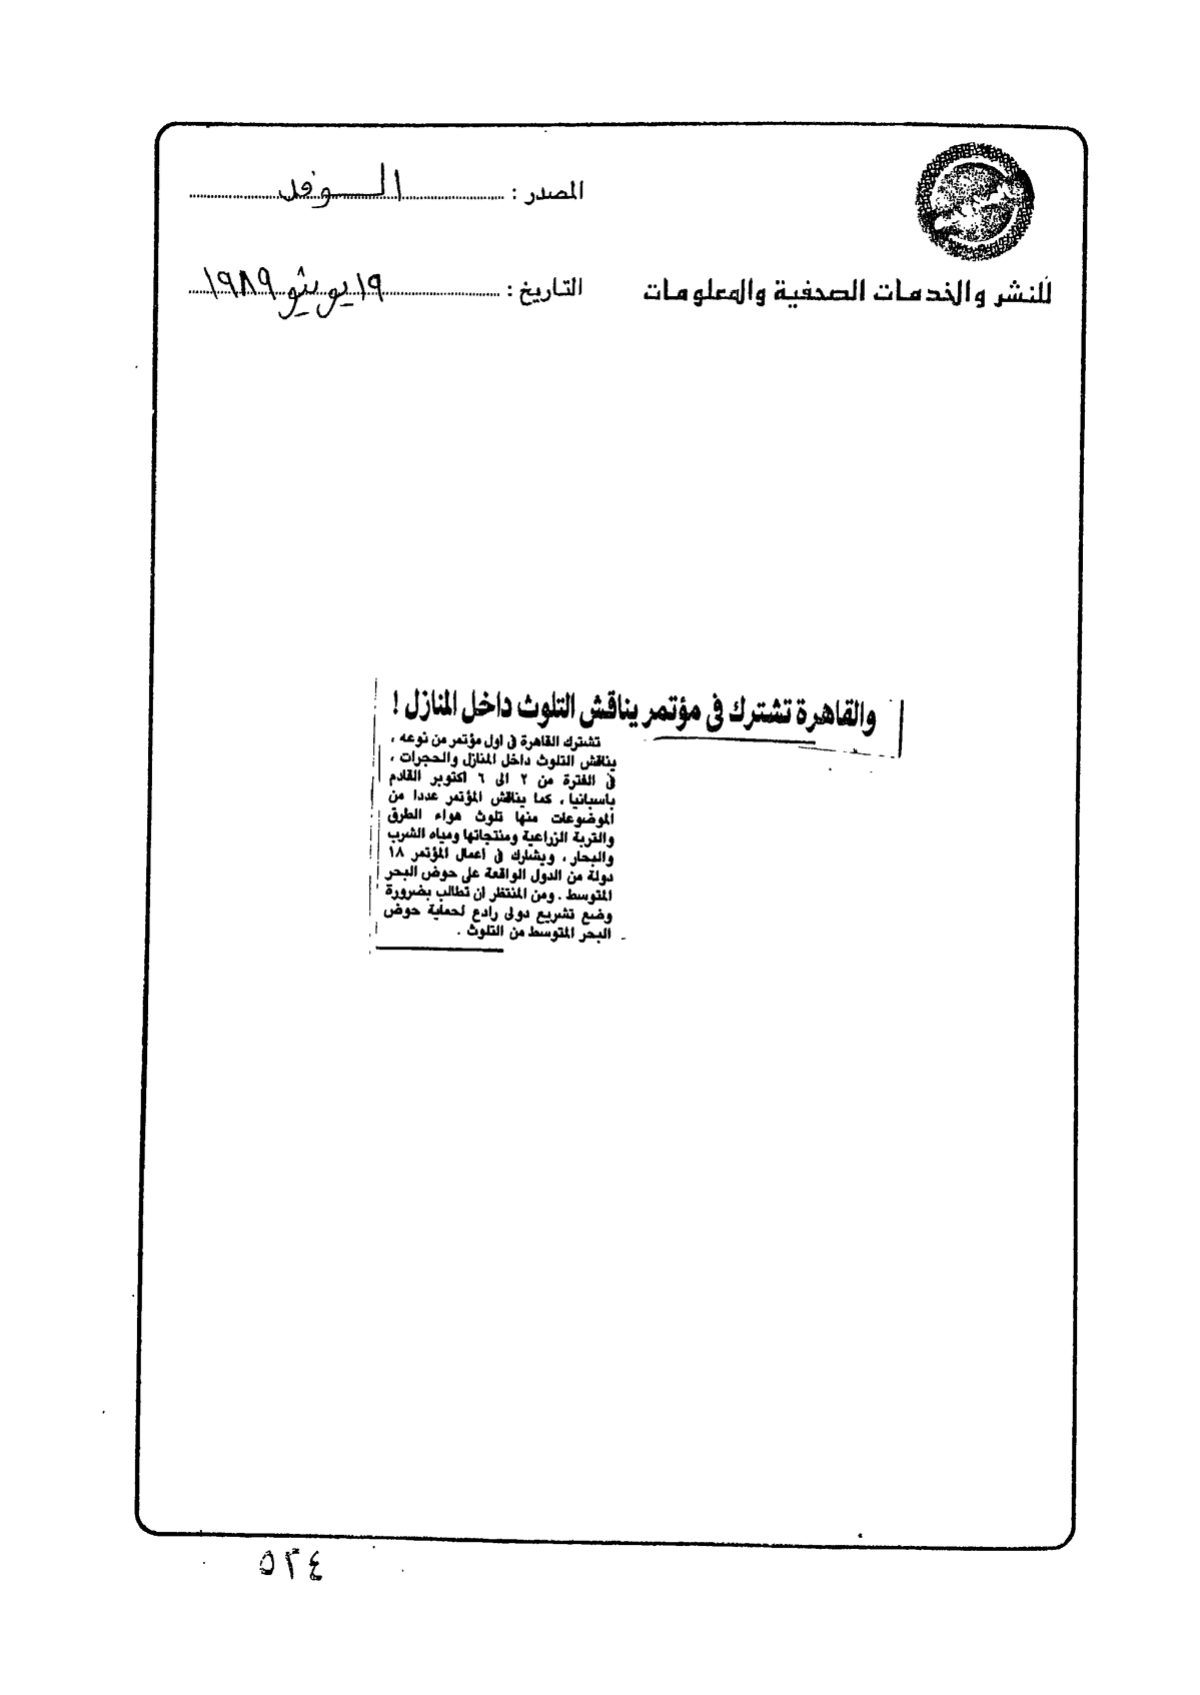 المصدر : الوفد
للنشر والخدمات الصحفية والمعلومات
التاريخ : ١٩ يونيو ١٩٨٩
والقاهرة تشترك فى مؤتمر يناقش التلوث داخل المنازل !
تشترك القاهرة فى اول مؤتمر من نوعه ،
يناقش التلوث داخل المنازل والحجرات ،
فى الفترة من ٢ الى ٦ اكتوبر القادم
باسبانيا ، كما يناقش المؤتمر عددا من
الموضوعات منها تلوث هواء الطرق
والتربة الزراعية ومنتجاتها ومياه الشرب
والبحار ، ويشارك فى أعمال المؤتمر ١٨
دولة من الدول الواقعة على حوض البحر
المتوسط . ومن المنتظر ان تطالب بضرورة
وضع تشريع دولى رادع لحماية حوض
البحر المتوسط من التلوث .
٥٣٤